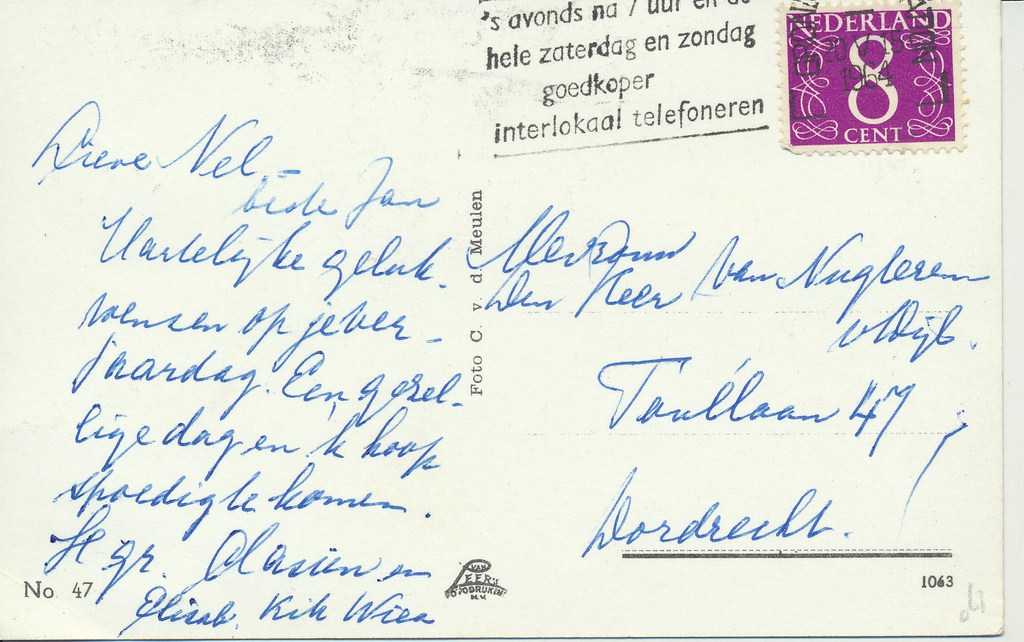 's avonds na 7 uur en de
hele zaterdag en zondag
goedkoper
interlokaal telefoneren
NEDERLAND
20 V 15
1964
8
CENT
Lieve Nel -
beste Jan
Hartelijke geluk-
wensen op je ver-
jaardag. Een gezel-
lige dag en 'k hoop
spoedig te komen.
H gr.
en
Elisab. Kik Wien
Foto C. v. d. Meulen
Mevrouw
Den Heer van Nugteren
v Dijk.
Toulllaan 47
Dordrecht.
No. 47
VAN
LEER'S
FOTODRUKIND.
N.V.
1063